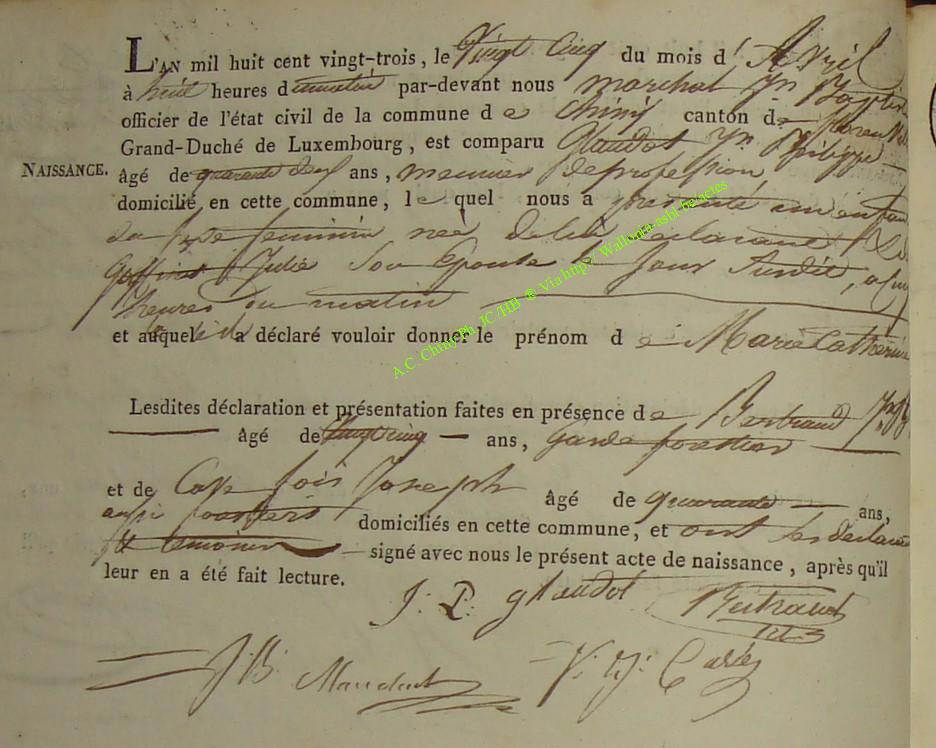 L'AN mil huit cent vingt-trois, le Vingt Cinq du mois d' Avril
à huit heures du matin par-devant nous marchal Jn Baptis
officier de l'état civil de la commune d e Chiny canton de Floren
Grand-Duché de Luxembourg, est comparu Glaudot Jn Philippe
NAISSANCE.
âgé de quarante deux ans, meunier de profession
domicilié en cette commune, l e quel nous a presenté un enfan
du sexe feminin née de lui declarant
Goffinet Julie Son Epouse le Jour Susdit, a
heures du matin
et auquel il a déclaré vouloir donner le prénom d e Marie Catherine
Lesdites déclaration et présentation faites en présence d e Bertrand
âgé de vingt cinq ans, Garde forestier
et de Joseph âgé de quarante ans,
aussi forestier domiciliés en cette commune, et ont les declarant
et temoins signé avec nous le présent acte de naissance, après qu'il
leur en a été fait lecture.
J: P: glaudot Bertrand
J: B: Marchal
A.C. Chiny Ph. JC /HB © Via http:// Wallonia-asbl-be/actes